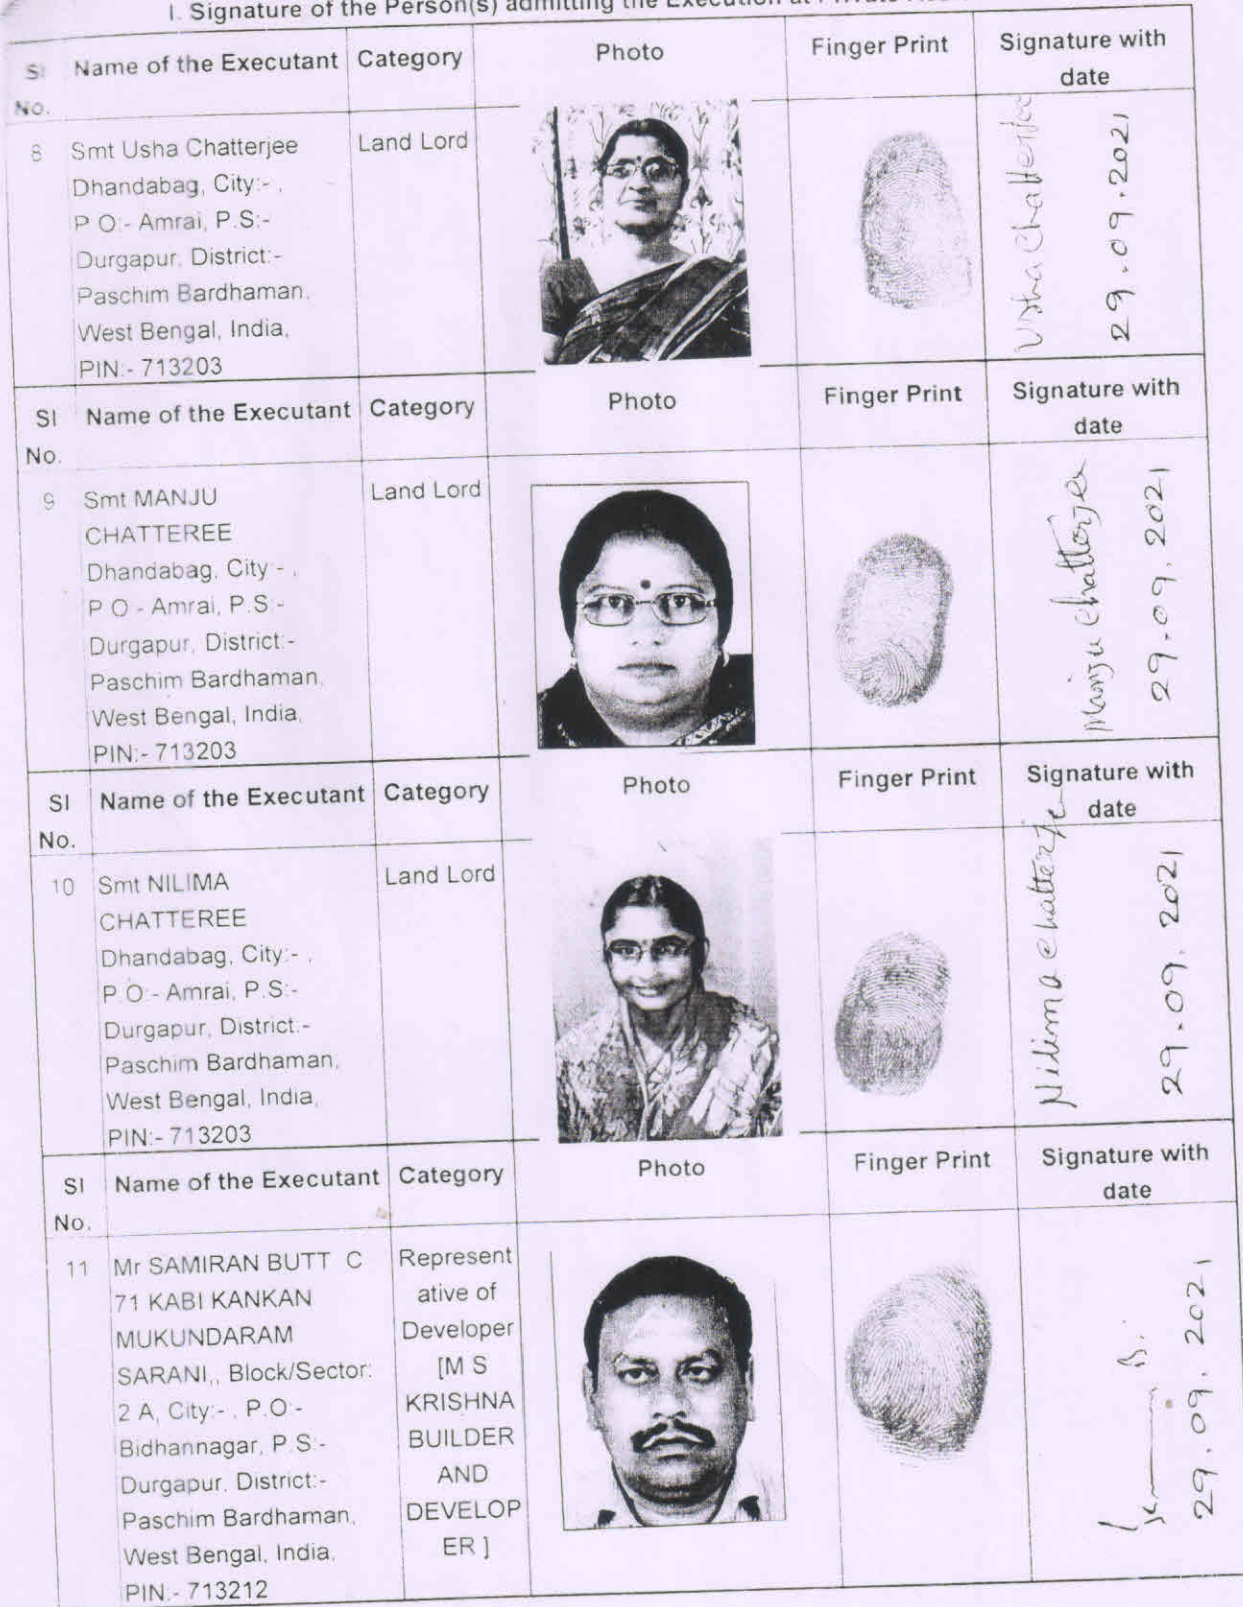 I. Signature of the Person(s) admitting the Execution at Private
Sl No. Name of the Executant Category Photo Finger Print Signature with date
8 Smt Usha Chatterjee Land Lord
Dhandabag, City:- ,
P.O:- Amrai, P.S:-
Durgapur, District:-
Paschim Bardhaman,
West Bengal, India,
PIN:- 713203
Usha Chatterjee
29.09.2021
Sl No. Name of the Executant Category Photo Finger Print Signature with date
9 Smt MANJU Land Lord
CHATTEREE
Dhandabag, City:- ,
P.O:- Amrai, P.S:-
Durgapur, District:-
Paschim Bardhaman,
West Bengal, India,
PIN:- 713203
Manju Chatterjee
29.09.2021
Sl No. Name of the Executant Category Photo Finger Print Signature with date
10 Smt NILIMA Land Lord
CHATTEREE
Dhandabag, City:- ,
P.O:- Amrai, P.S:-
Durgapur, District:-
Paschim Bardhaman,
West Bengal, India,
PIN:- 713203
Nilima Chatterjee
29.09.2021
Sl No. Name of the Executant Category Photo Finger Print Signature with date
11 Mr SAMIRAN BUTT C
71 KABI KANKAN
MUKUNDARAM
SARANI,, Block/Sector:
2 A, City:- , P.O:-
Bidhannagar, P.S:-
Durgapur, District:-
Paschim Bardhaman,
West Bengal, India,
PIN:- 713212
Represent
ative of
Developer
[M S
KRISHNA
BUILDER
AND
DEVELOP
ER ]
29.09.2021